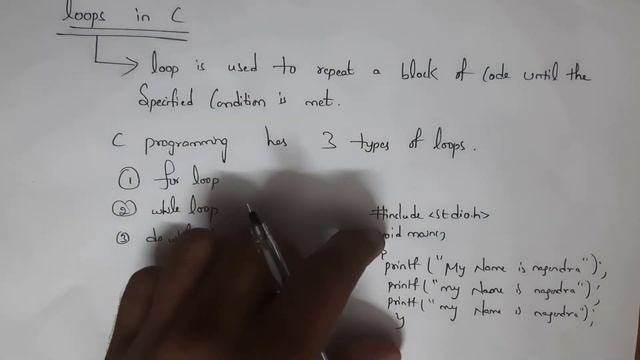 loops in C
loop is used to repeat a block of code until the
Specified Condition is met.
C programming has 3 types of loops.
① for loop
② while loop
③ do
#include <stdio.h>
void main()
printf ("My Name is nagendra");
printf ("my Name is nagendra");
printf ("my Name is nagendra");
}